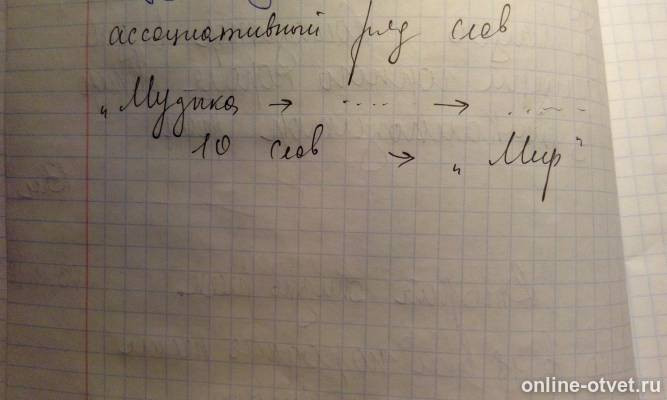 ассоциативный ряд слов
„Музыка → .... → ......
10 слов → „Мир"
online-otvet.ru